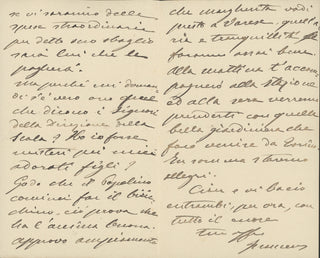 se vi saranno delle
spese straordinarie
per detto suo sbaglio
sarà lui che le
pagherà.
Ma perché mi doman
di s'è vero una quale
che dicono i Signori
della direzione della
Scala? Ho io forse
misteri pei miei
adorati figli?
Godo che il Popolino
cominci far il
chino, ciò prova che
ha l'anima buona.
Approvo ampiamente
che Margherita vadi
presto a Varese. Quell'a
ria e tranquillità le
faranno assai bene.
Alla mattina t'accom
pagnerò alla stazione
ed alla sera verremo
prenderti con quella
bella giardiniera che
farò venire da Torino.
In somma staremo
allegri.
Ciao e vi bacio
entrambi, per ora, con
tutto il cuore
tuo aff